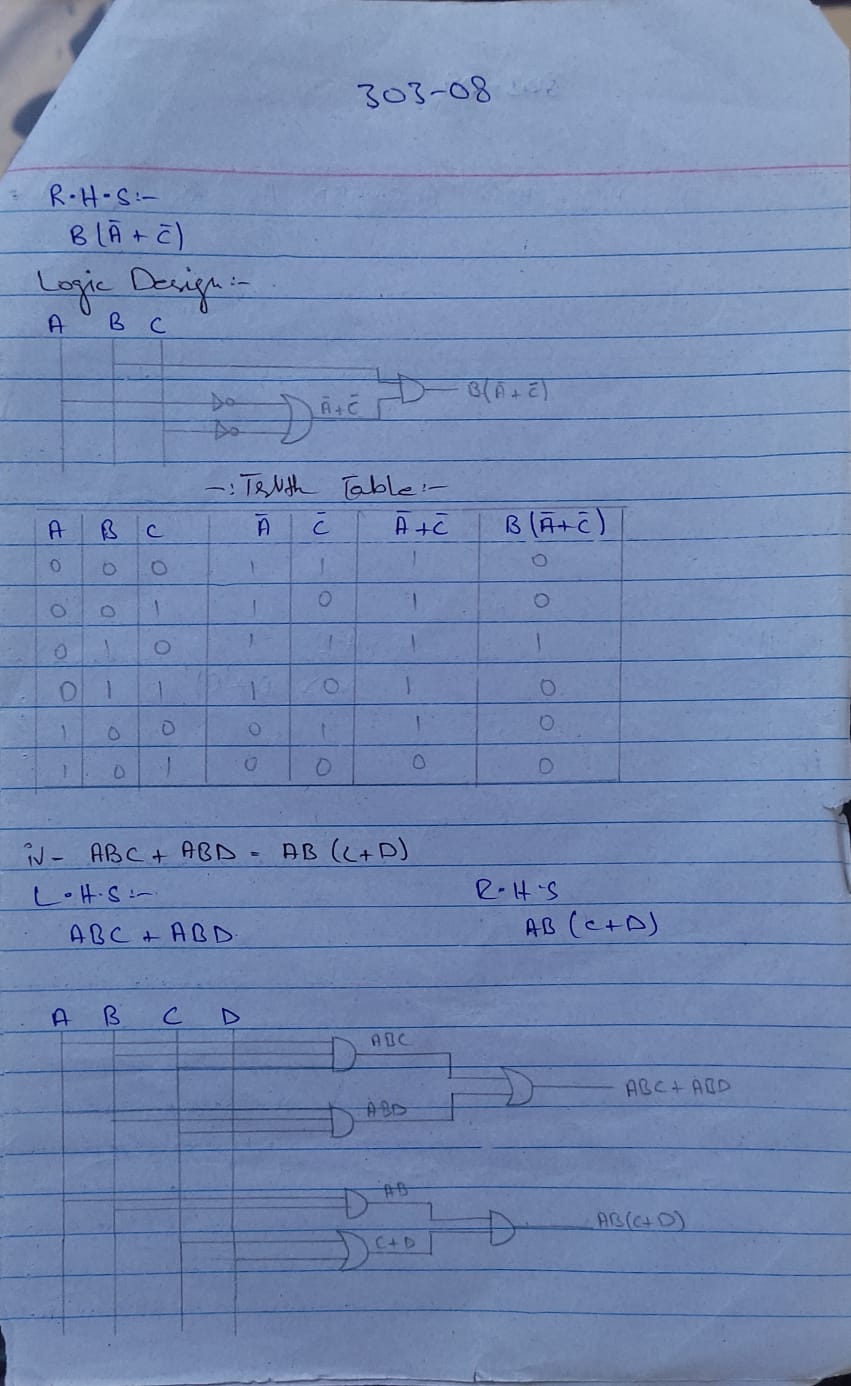 303-08
R.H.S:-
B(Ā + C̄)
Logic Design:-
A B C
B(Ā + C̄)
Ā+C̄
-: Truth Table:-
A B C Ā C̄ Ā+C̄ B(Ā+C̄)
0 0 0 1 1 1 0
0 0 1 1 0 1 0
0 1 0 1 1 1 1
0 1 1 1 0 1 0
1 0 0 0 1 1 0
1 0 1 0 0 0 0
iv- ABC + ABD = AB (C+D)
L.H.S:- R.H.S
ABC + ABD. AB (C+D)
A B C D
ABC
ABC + ABD
ABD
AB
AB(C+D)
C+D